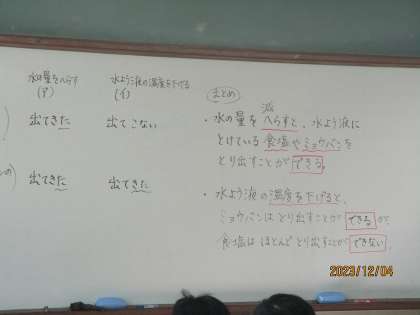 水の量をへらす
(ア)
水よう液の温度を下げる
(イ)
出てきた
出てこない
出てきた
出てきた
まとめ
減
・水の量をへらすと、水よう液に
とけている食塩やミョウバンを
とり出すことができる。
・水よう液の温度を下げると、
ミョウバンはとり出すことができるが、
食塩はほとんどとり出すことができない。
2023/12/04